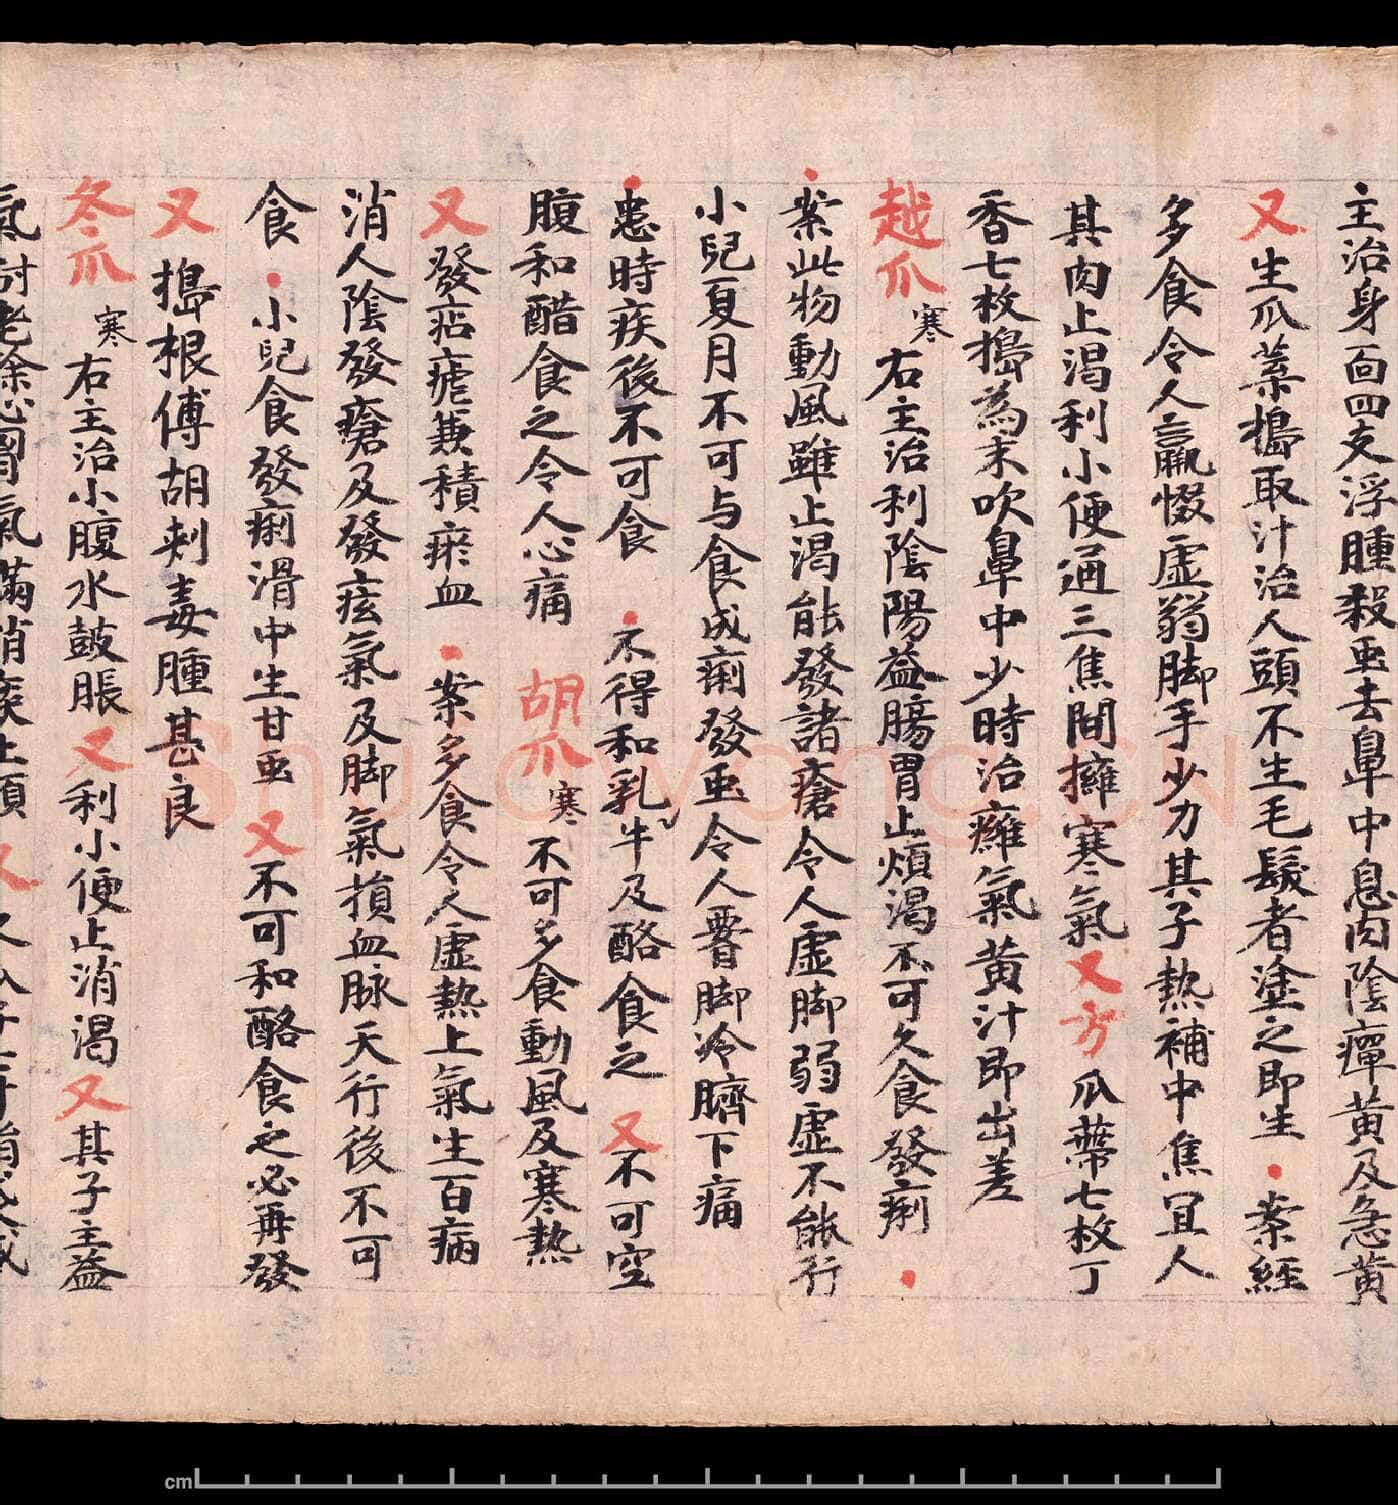 主治身面四支浮腫殺䖝去鼻中息肉陰癉黃及急黃
又生瓜葉擣取汁治人頭不生毛髮者塗之即生・案經
多食令人羸惙虛弱脚手少力其子熱補中焦宜人
其肉止渴利小便通三焦間擁寒氣又方瓜蔕七枚丁
香七枚擣為末吹鼻中少時治癰氣黃汁即出差
越瓜寒右主治利陰陽益腸胃止煩渴不可久食發痢・
・案此物動風雖止渴能發諸瘡令人虛脚弱虛不能行
小兒夏月不可与食成痢發䖝令人𦝫脚冷臍下痛
・患時疾後不可食・不得和乳牛及酪食之又不可空
腹和醋食之令人心痛胡瓜寒不可多食動風及寒熱
又發痁瘧兼積瘀血・案多食令人虛熱上氣生百病
消人陰發瘡及發痃氣及脚氣損血脉天行後不可
食・小兒食發痢滑中生甘䖝又不可和酪食之必再發
又擣根傅胡刺毒腫甚良
冬瓜寒右主治小腹水鼓脹又利小便止消渴又其子主益
氣耐老除心胷氣滿消痰止煩又